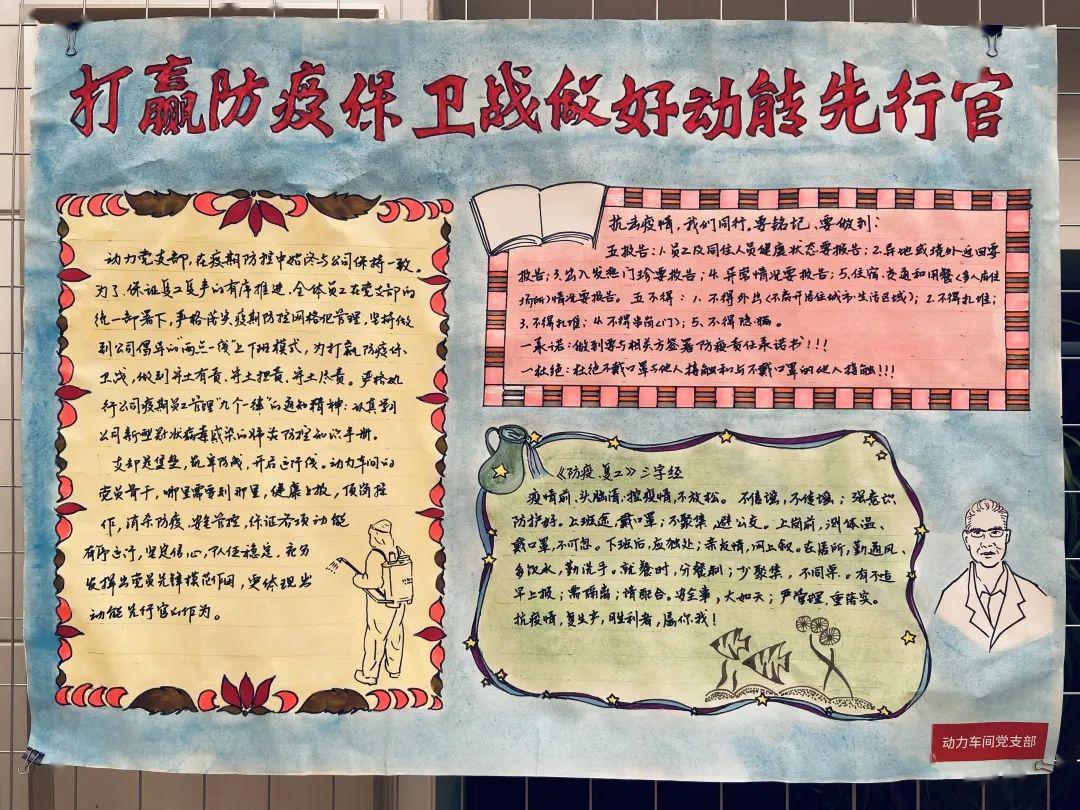 打赢防疫保卫战做好动能先行官
动力党支部,在疫期防控中始终与公司保持一致。
为了保证复工复产的有序推进,全体员工在党支部的
统一部署下,严格落实疫期防控网格化管理,坚持做
到公司倡导的"两点一线"上下班模式,为打赢防疫保
卫战,做到守土有责、守土担责、守土尽责。严格执
行公司疫期员工管理"九个一律"的通知精神:认真学习
公司新型冠状病毒感染的肺炎防控知识手册。
支部是堡垒,筑牢防线,开启运行线。动力车间的
党员骨干,哪里需要到那里,健康上报,顶岗操
作,消杀防疫,安全管控,保证各项动能
有序运行,坚定信心,队伍稳定,充分
发挥出党员先锋模范作用,更体现出
动能先行官的作为。
抗击疫情,我们同行。要铭记,要做到:
五报告:1.员工及同住人员健康状态要报告;2.异地或境外返回要
报告;3.出入发热门珍要报告;4.异常情况要报告;5.住宿、交通和用餐(多人居住
场所)情况要报告。五不得:1、不得外出(不离开居住城市、生活区域);2.不得扎堆;
3、不得扎堆;4、不得串岗(门);5、不得隐瞒。
一承诺:做到要与相关方签署"防疫责任承诺书"!!!
一杜绝:杜绝不戴口罩与他人接触和与不戴口罩的他人接触!!!
《防疫复工》三字经
疫情前,头脑清;控疫情,不放松。不信谣,不传谣;强意识
防护好。上班途,戴口罩;不聚集,避公交。上岗前,测体温、
戴口罩,不可忽。下班后,应独处;亲友情,网上叙。在居所,勤通风、
多饮水,勤洗手。就餐时,分餐制;少聚集,不同桌。有不适
早上报;需隔离,请配合。安全事,大如天;严管理,重落实。
抗疫情,复生产,胜利者,属你我!
动力车间党支部